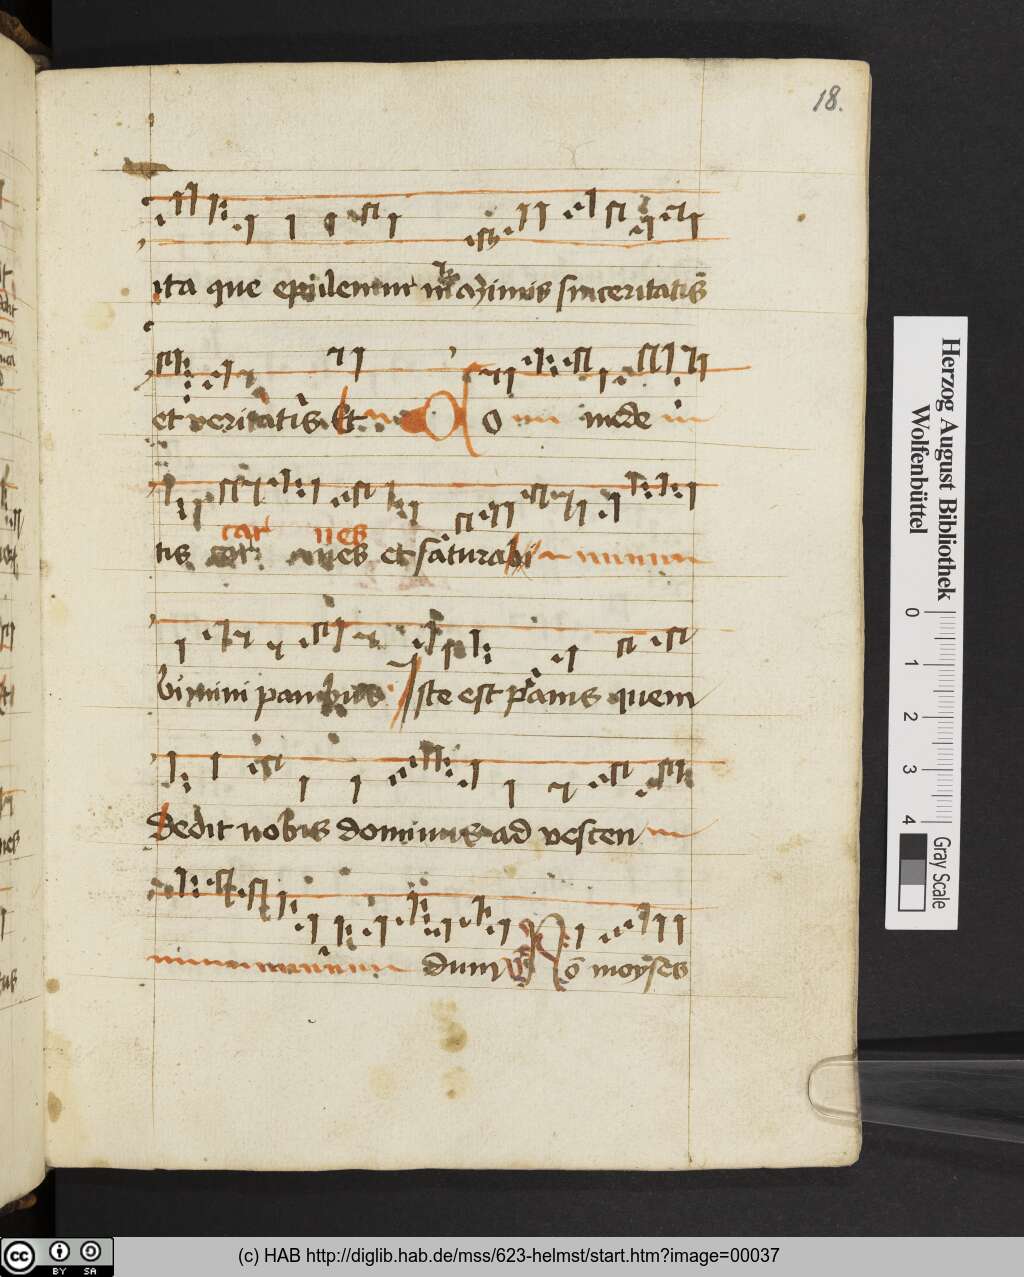 18.
ita que epulemur in azimis sinceritatis
et veritatis et
Co me de
tis car nes et saturabi
bimini panibus Iste est panis quem
Dedit nobis dominus ad vescen
dum Ro moyses
Herzog August Bibliothek
Wolfenbüttel
0 1 2 3 4
Gray Scale
cc BY SA
(c) HAB http://diglib.hab.de/mss/623-helmst/start.htm?image=00037